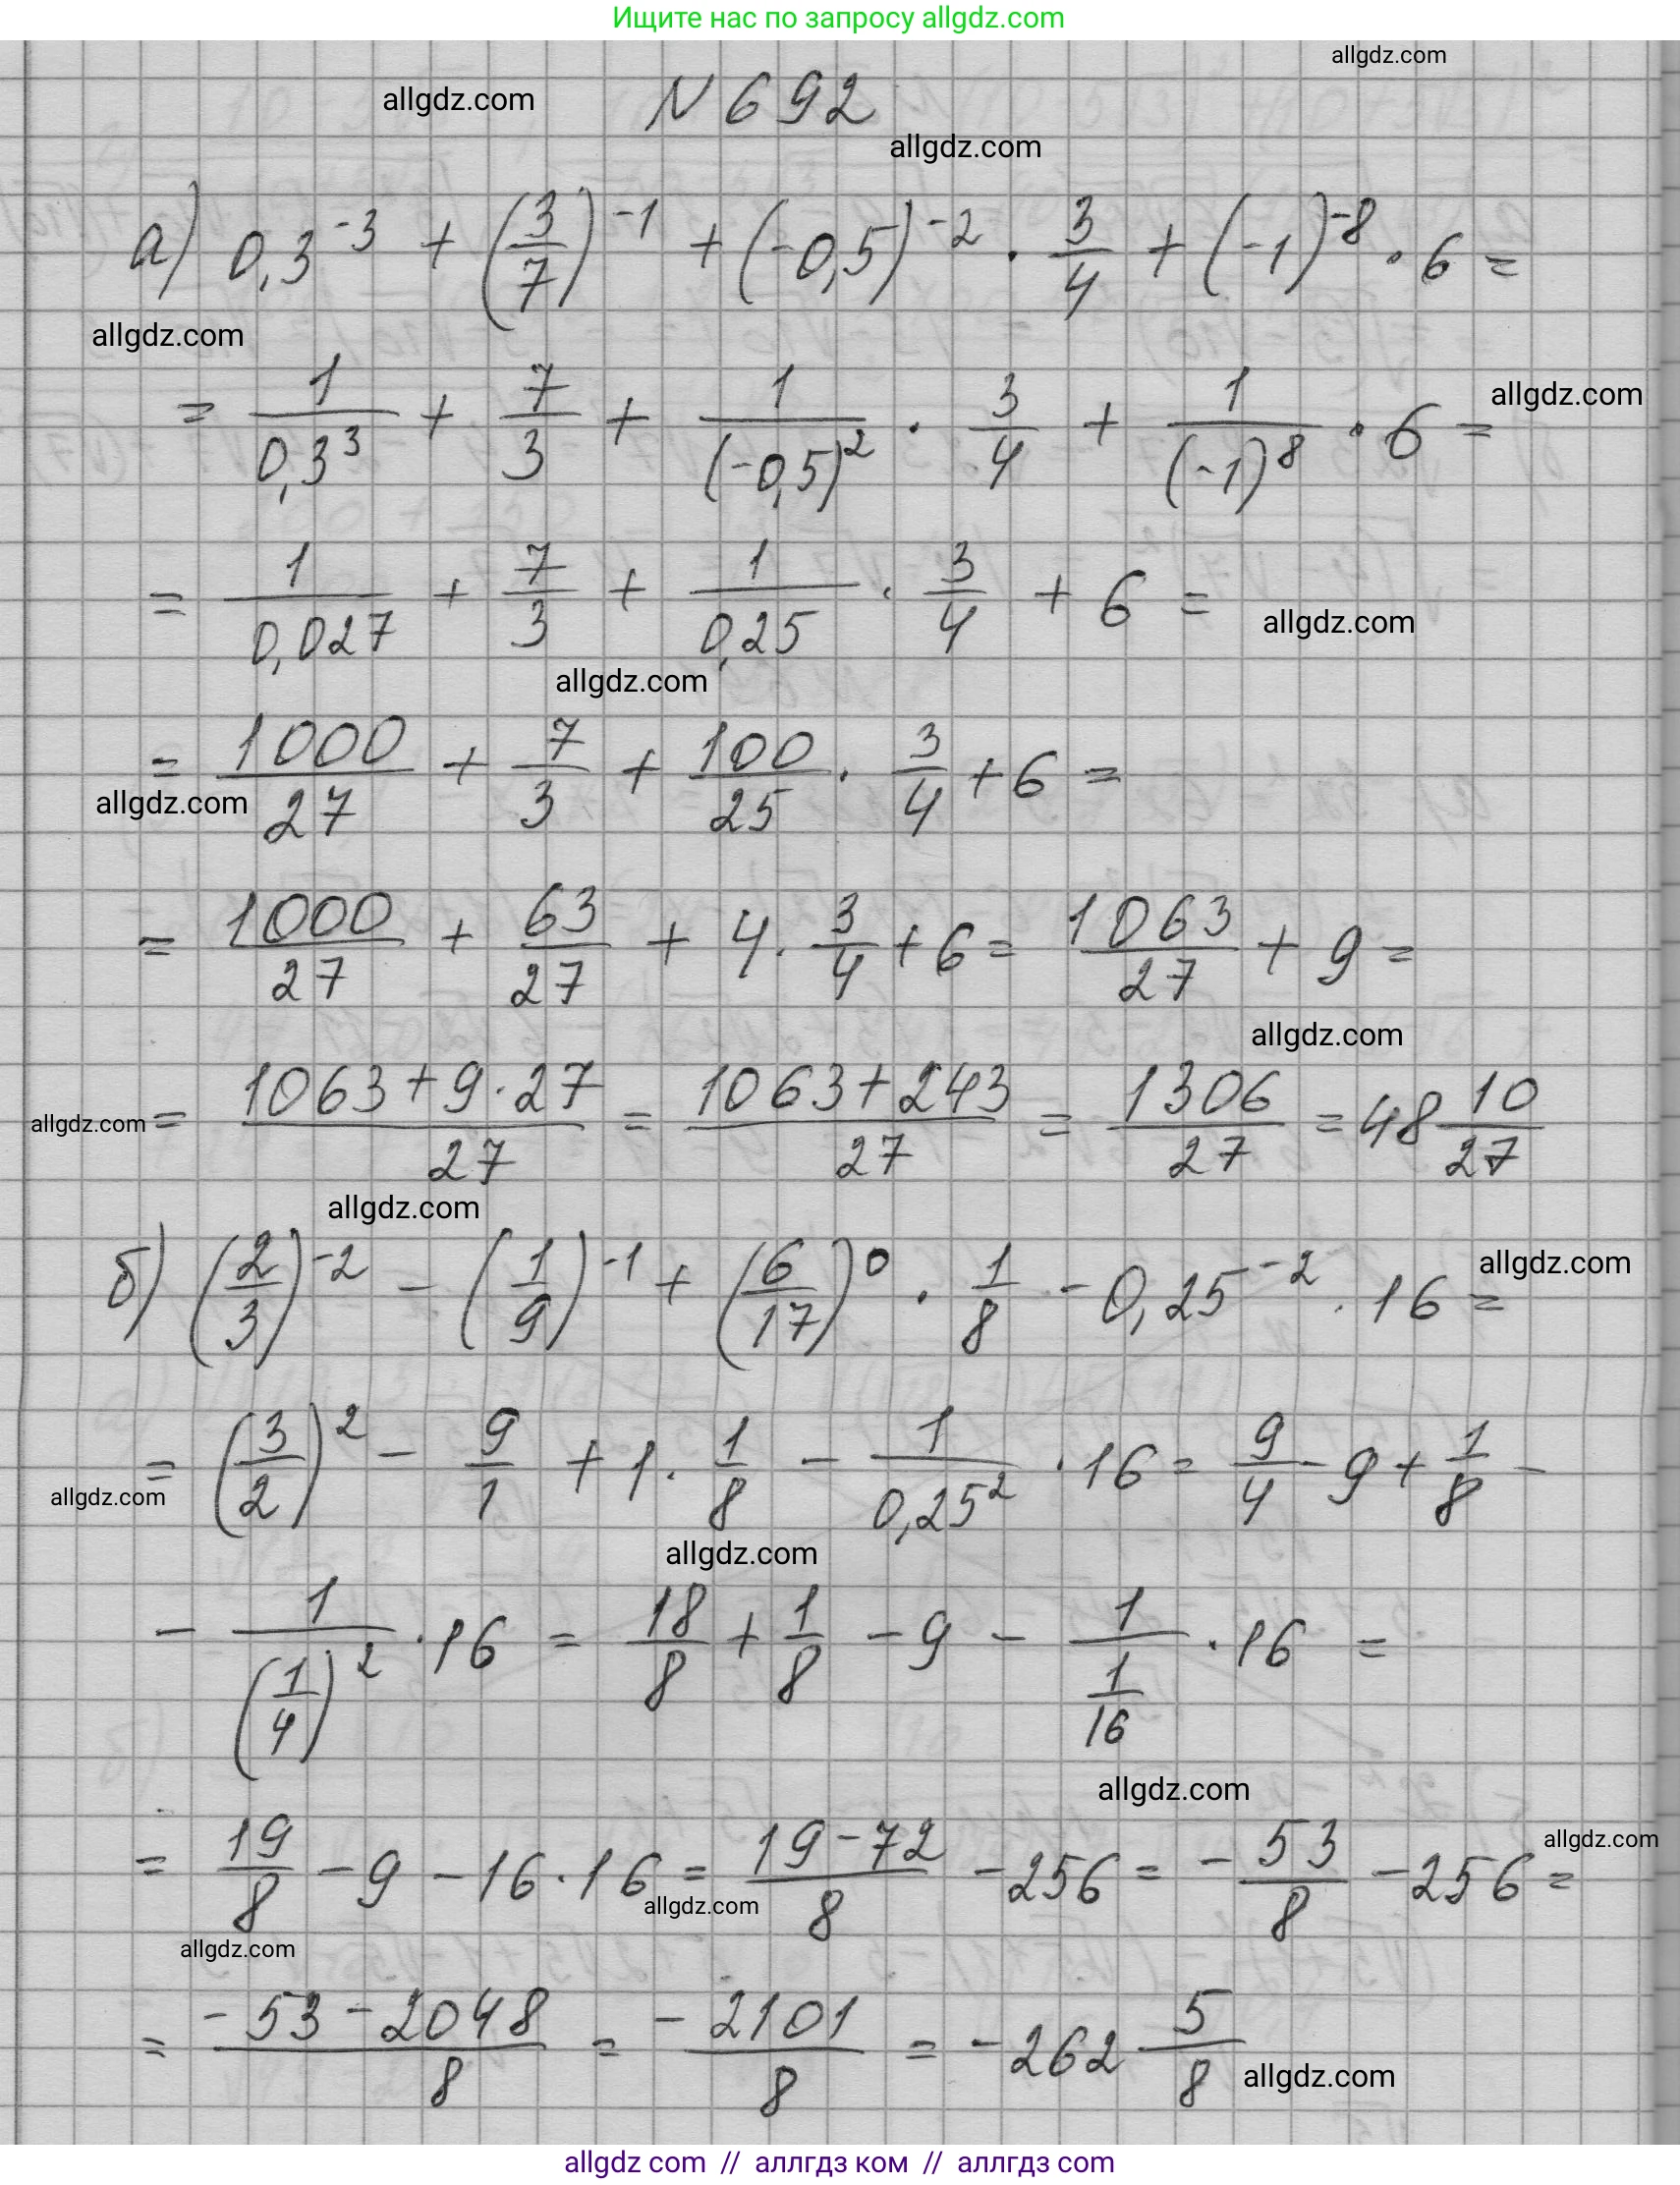 Ищите нас по запросу allgdz.com
allgdz.com
allgdz.com
N 692
allgdz.com
а) 0,3^{-3} + (3/7)^{-1} + (-0,5)^{-2} · 3/4 + (-1)^{-8} · 6 =
allgdz.com
= 1/0,3^3 + 7/3 + 1/(-0,5)^2 · 3/4 + 1/(-1)^8 · 6 =
allgdz.com
= 1/0,027 + 7/3 + 1/0,25 · 3/4 + 6 =
allgdz.com
allgdz.com
= 1000/27 + 7/3 + 100/25 · 3/4 + 6 =
allgdz.com
= 1000/27 + 63/27 + 4 · 3/4 + 6 = 1063/27 + 9 =
allgdz.com
allgdz.com
= (1063 + 9 · 27)/27 = (1063 + 243)/27 = 1306/27 = 48 10/27
allgdz.com
б) (2/3)^{-2} - (1/9)^{-1} + (6/17)^0 · 1/8 - 0,25^{-2} · 16 =
allgdz.com
= (3/2)^2 - 9/1 + 1 · 1/8 - 1/0,25^2 · 16 = 9/4 - 9 + 1/8 -
allgdz.com
allgdz.com
- 1/(1/4)^2 · 16 = 18/8 + 1/8 - 9 - 1/(1/16) · 16 =
allgdz.com
= 19/8 - 9 - 16 · 16 = (19 - 72)/8 - 256 = - 53/8 - 256 =
allgdz.com
allgdz.com
allgdz.com
= (-53 - 2048)/8 = -2101/8 = -262 5/8
allgdz.com
allgdz com // аллгдз ком // аллгдз com